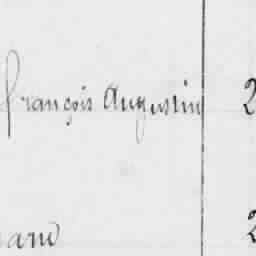 françois Augustin 2
2